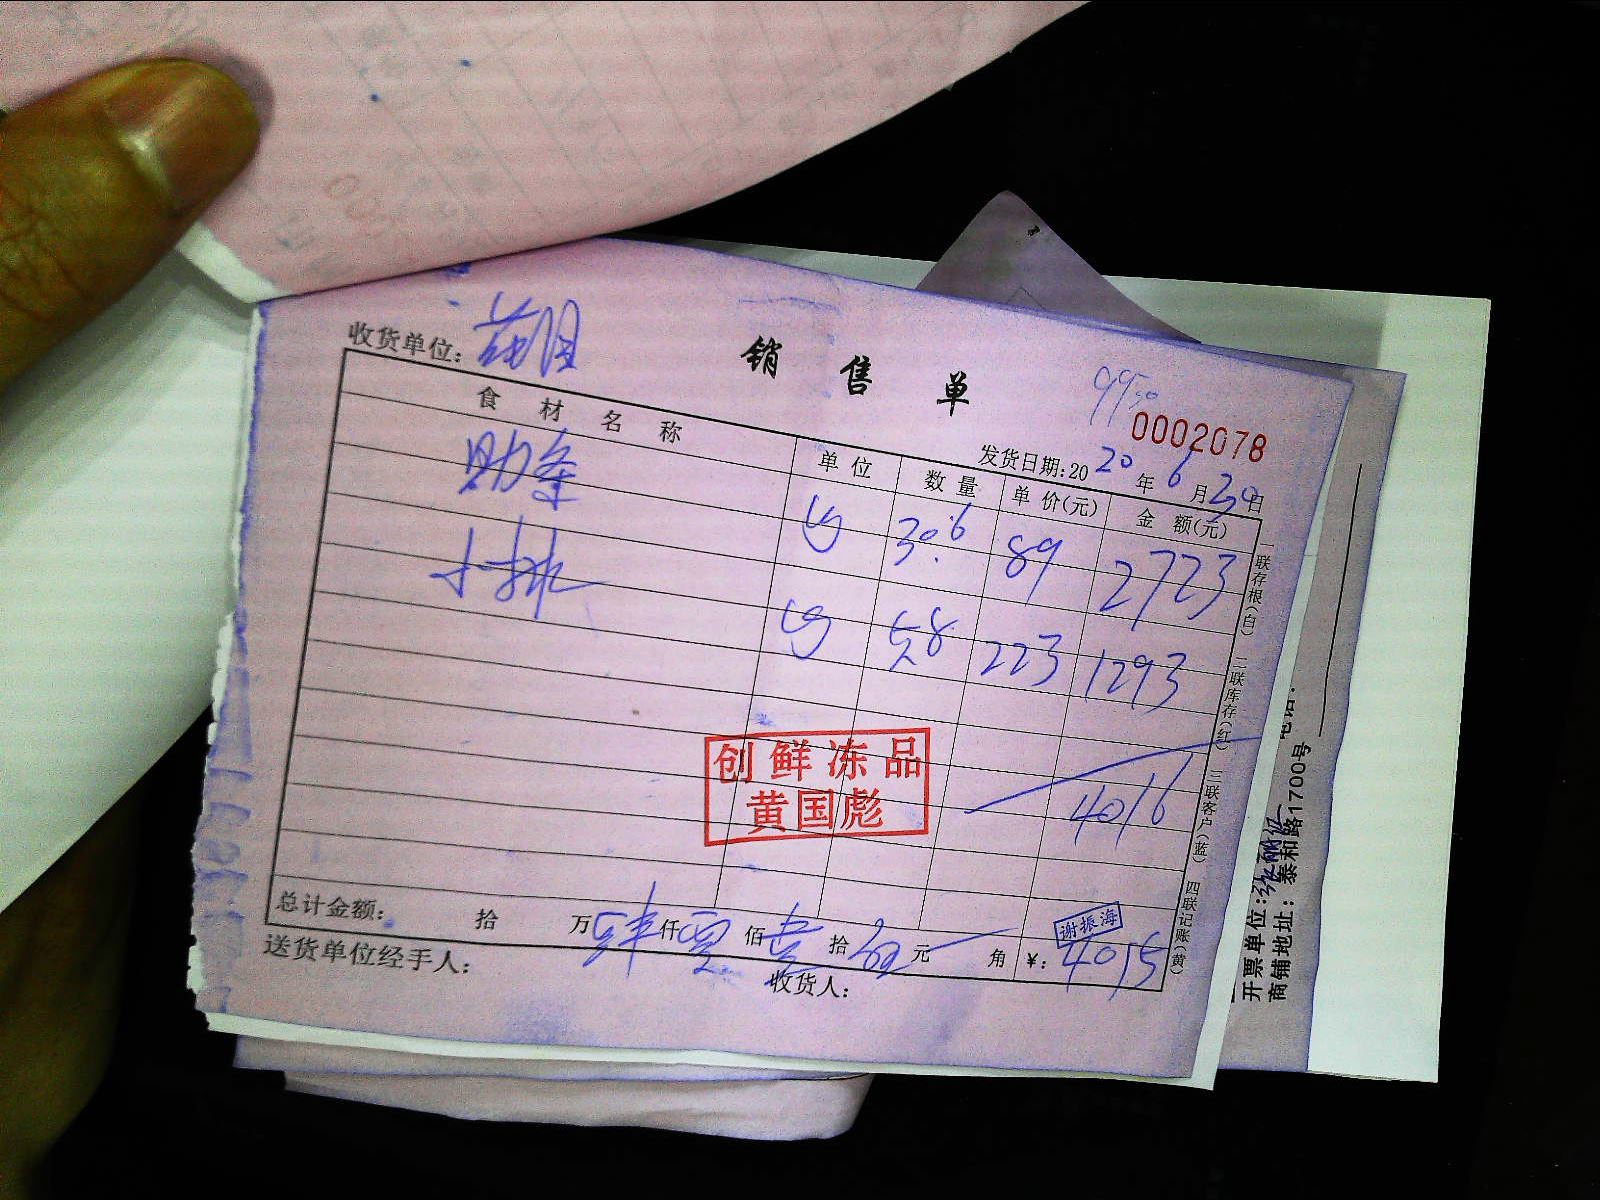 收货单位：
销售单
0002078
发货日期:2020年6月30日
食材名称 单位 数量 单价(元) 金额(元)
肋条 30.6 89 2723
小排 5.8 223 1293
4016
创鲜冻品
黄国彪
总计金额： 拾 万 肆仟 零佰 壹拾 伍元 角 ¥: 4015
谢振海
送货单位经手人： 收货人：
一联存根(白) 二联库存(红) 三联客户(蓝) 四联记账(黄)
开票单位:
商铺地址：泰和路1700号